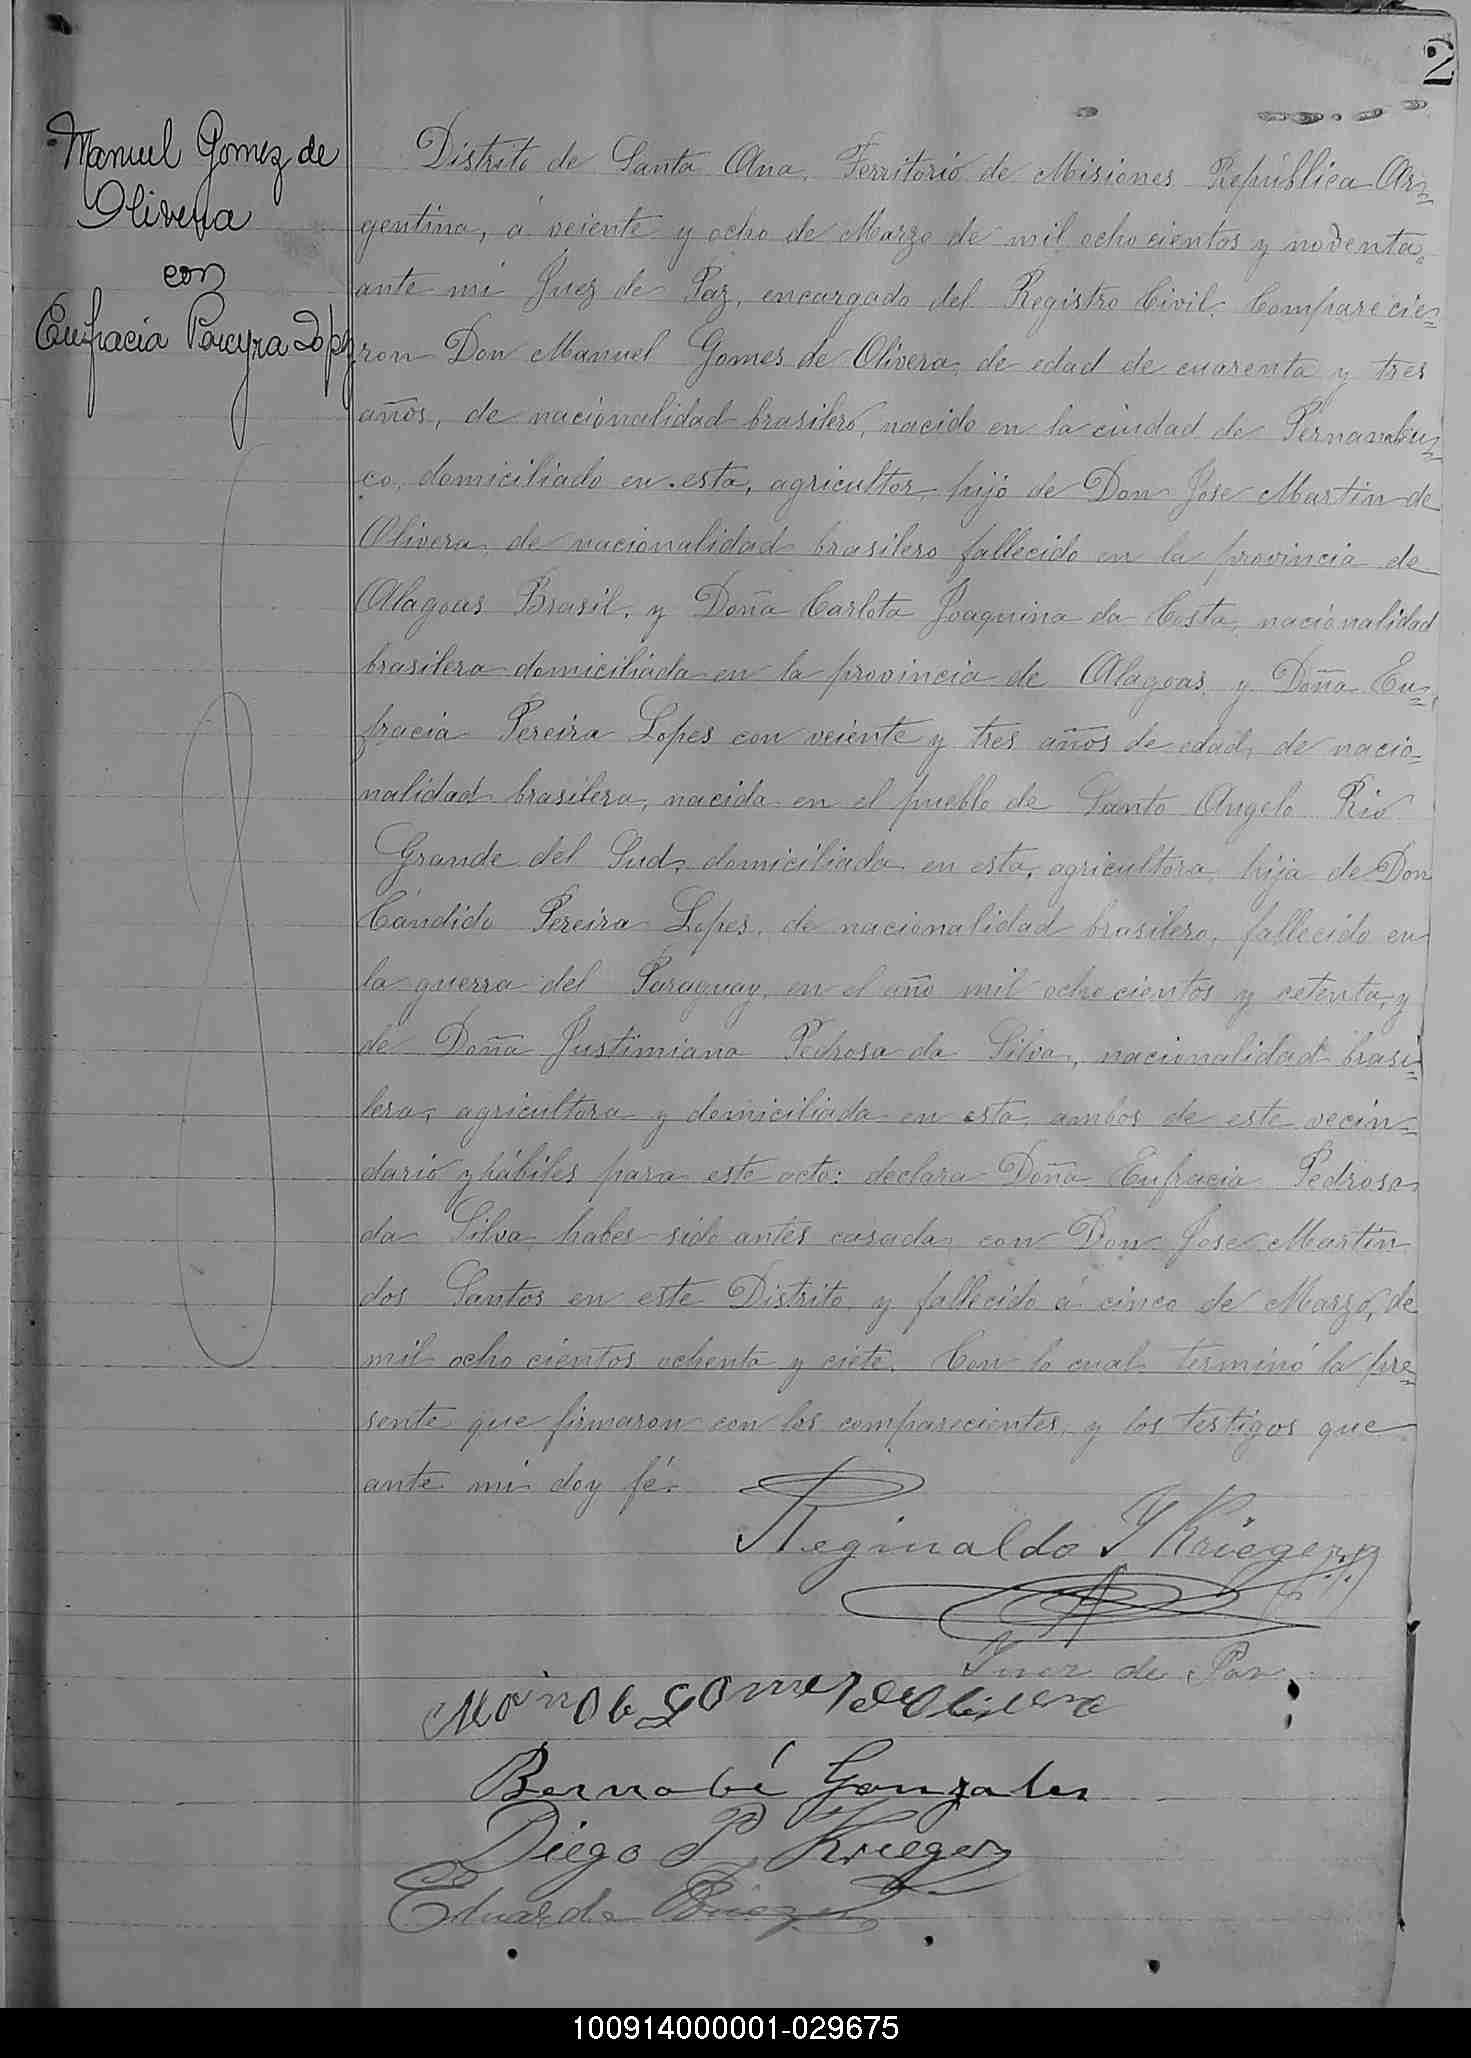 2
Manuel Gomez de
Olivera
con
Eufracia Pereyra Lopez
Distrito de Santa Ana, Territorio de Misiones República Ar=
gentina, á veiente y ocho de Marzo de mil ocho cientos y noventa,
ante mi Juez de Paz, encargado del Registro Civil. Comparecie=
ron Don Manuel Gomes de Olivera, de edad de cuarenta y tres
años, de nacionalidad brasilero, nacido en la ciudad de Pernambu=
co, domiciliado en esta, agricultor, hijo de Don Jose Martin de
Olivera, de nacionalidad brasilero fallecido en la provincia de
Alagoas Brasil, y Doña Carlota Joaquina da Costa, nacionalidad
brasilera domiciliada en la provincia de Alagoas, y Doña Eu=
fracia Pereira Lopes con veiente y tres años de edad, de nacio=
nalidad brasilera, nacida en el pueblo de Santo Angelo Rio
Grande del Sud, domiciliada en esta, agricultora, hija de Don
Cándido Pereira Lopes, de nacionalidad brasilero, fallecido en
la guerra del Paraguay, en el año mil ocho cientos y cetenta, y
de Doña Justimiana Pedrosa da Silva, nacionalidad brasi=
lera, agricultora y domiciliada en esta, ambos de este vecin=
dario y hábiles para este acto: declara Doña Eufracia Pedrosa
da Silva haber sido antes casada con Don Jose Martin
dos Santos en este Distrito, y fallecido á cinco de Marzo, de
mil ocho cientos ochenta y ciete. Con lo cual terminó la pre=
sente que firmaron con los comparecientes, y los testigos que
ante mi doy fé.
Reginaldo J Krieger
Juez de Paz
Manoel Gomes de Olivera
Bernabé Gonzales
Diego P Krieger
Eduardo
100914000001-029675